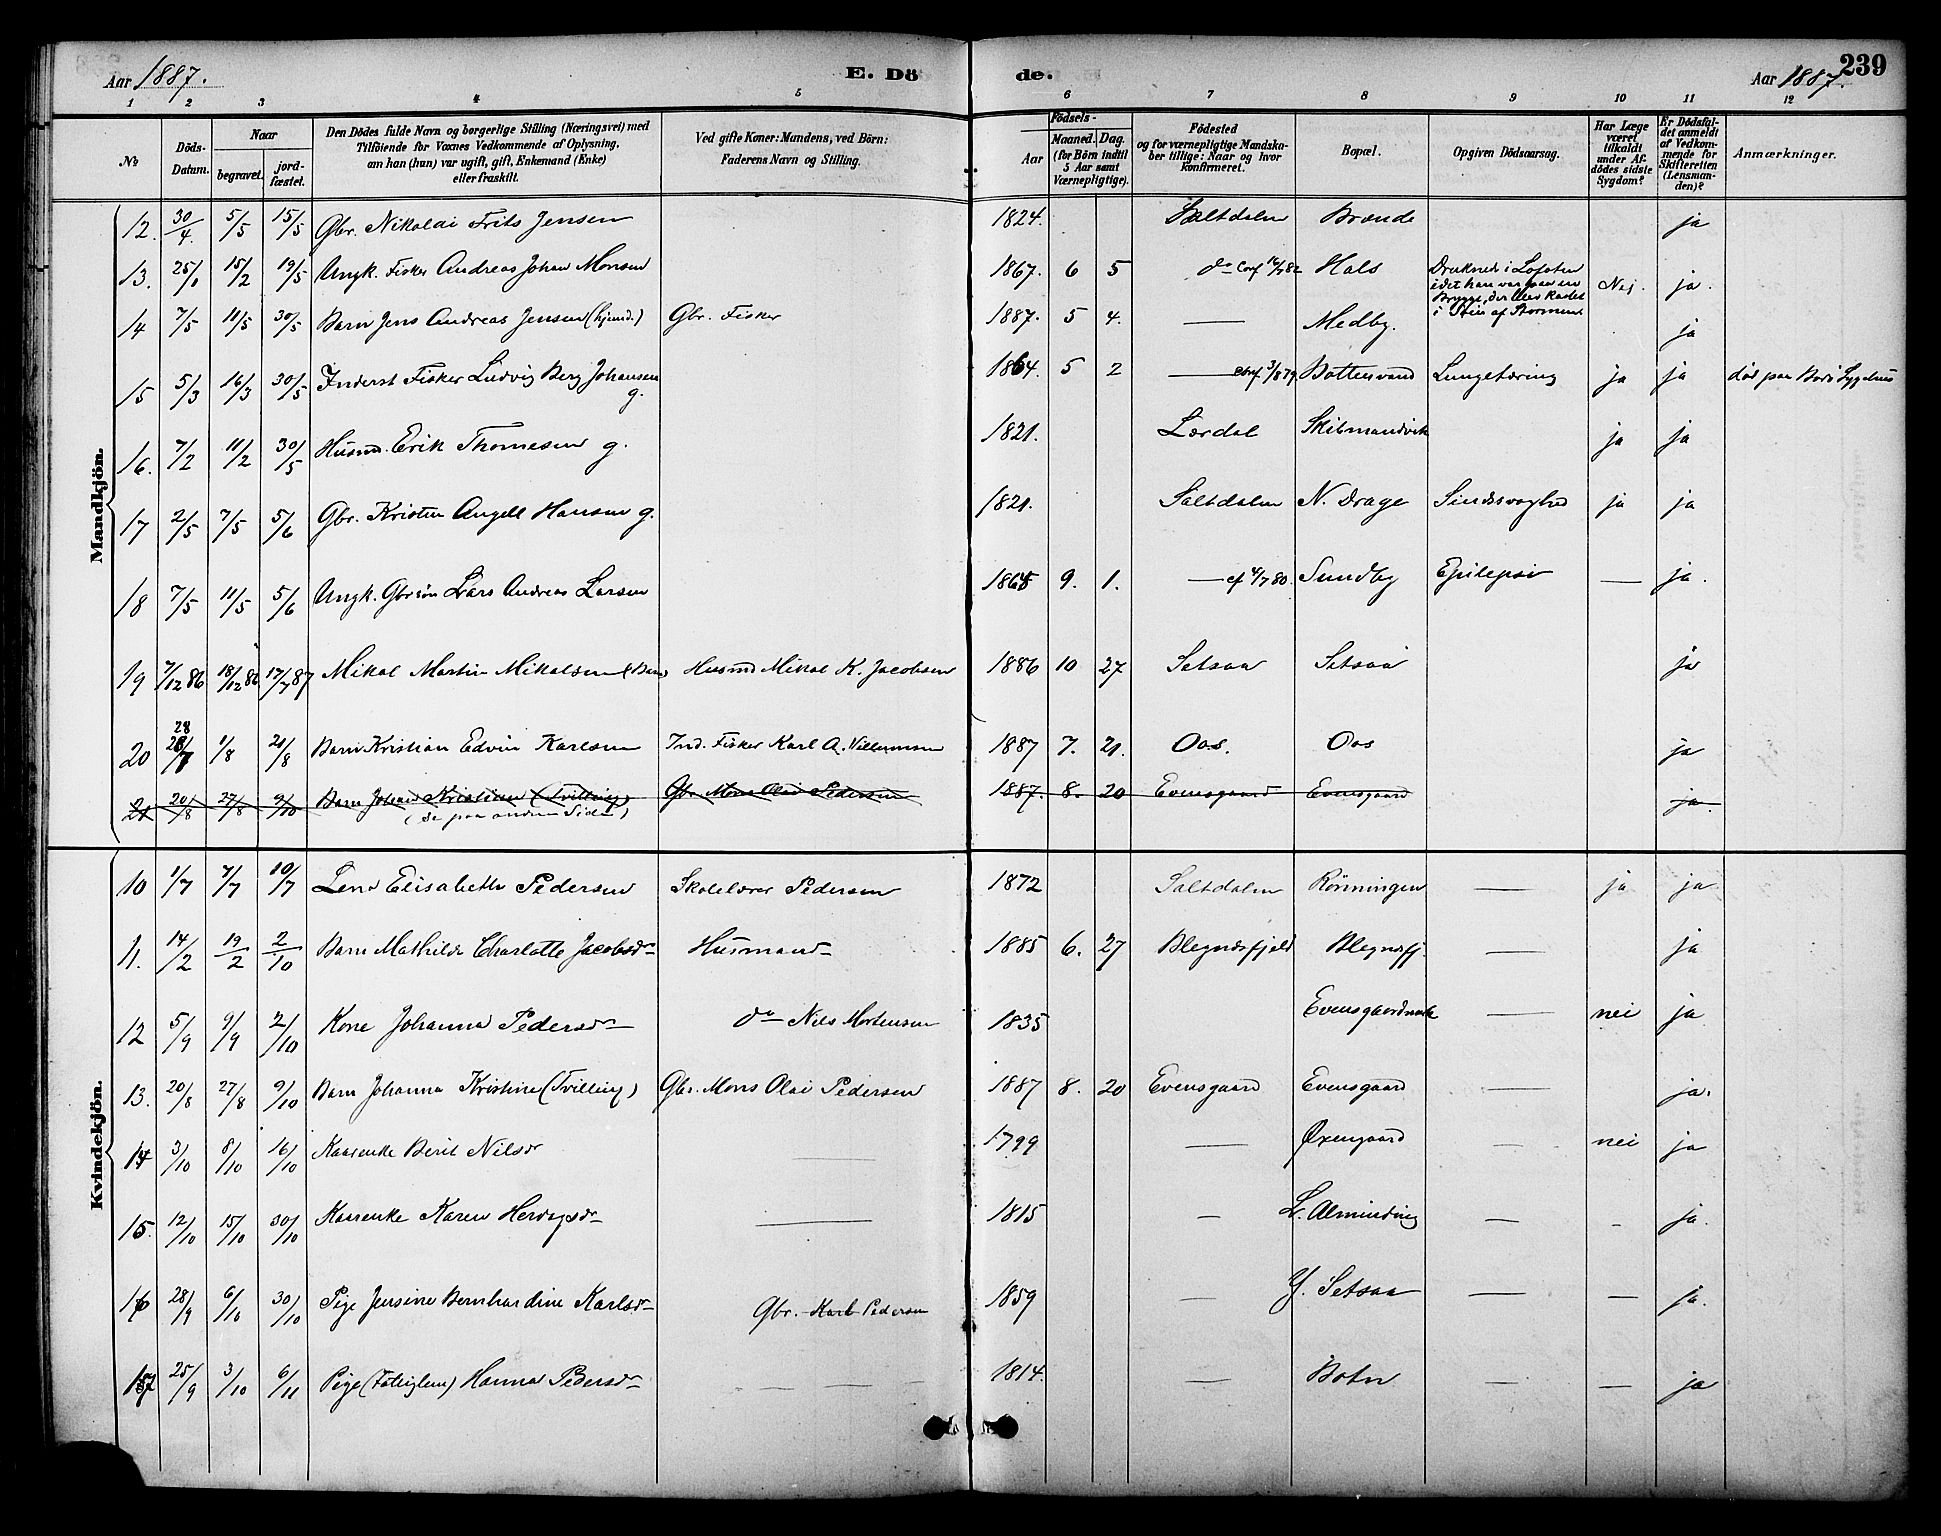 Aar 1887. E. Dö de. Aar 1887. 239
1 2 3 4 5 6 7 8 9 10 11 12
No
Döds-Datum.
Naar begravet. jordfæstet.
Den Dödes fulde Navn og borgerlige Stilling (Næringsvei) med
Tilföiende for Voxnes Vedkommende af Oplysning,
om han (hun) var ugift, gift, Enkemand (Enke)
eller fraskilt.
Ved gifte Koner: Mandens, ved Börn:
Faderens Navn og Stilling.
Födsels-
Aar Maaned. Dag.
(for Börn indtil 5 Aar samt Værnepligtige).
Födested
og for værnepligtige Mandskaber tillige: Naar og hvor konfirmeret.
Bopæl.
Opgiven Dödsaarsag.
Har Læge været tilkaldt under Afdödes sidste Sygdom?
Er Dödsfaldet anmeldt af Vedkommende for Skifteretten (Lensmanden)?
Anmærkninger.
Mandkjön.
12. 30/4. 5/5 15/5 Gbr. Nikolai Frits Jensen 1824. Saltdalen Brænde ja
13. 25/1 15/2 19/5 Ungk. Fisker Andreas Johan Monsen 1867. 6 5 do Conf 16/7 82 Hals Druknede i Lofoten
idet han var paa en
Brygge, der blev kastet
i Søen af Stormen Nej. ja.
14 7/5 11/5 30/5 Barn Jens Andreas Jensen (hjemd.) Gbr. Fisker 1887. 5 4. — Medby. ja
15 5/3 16/3 30/5 Inderst Fisker Ludvig Berg Johansen g. 1864. 5 2 — conf 3/8 79 Bottenvand Lungetæring ja ja død paa Bodø Sygehus
16. 7/2 11/2 30/5 Husmd. Erik Thomesen g. 1821. Lærdal Skibmandvik ja ja
17 2/5 7/5 5/6 Gbr. Kristen Angell Hansen g. 1821. Saltdalen N. Drage Sindssvaghed ja ja
18 7/5 11/5 5/6 Ungk. Gbrsøn Lars Andreas Larsen 1865 9. 1. — cf 4/7 80. Sundby Epilepsi — ja.
19 7/12 86 18/12 86 17/7 87 Mikal Martin Mikalsen (Barn) Husmd Mikal K. Jacobsen 1886 10 27 Setsaa Setsaa ja
20 28/7 1/8 21/8 Barn Kristian Edvin Karlsen Ind. Fisker Karl A. Villumsen 1887 7. 21. Oos. Oos ja
21 20/8 27/8 9/10 Barn Johan Kristian (Tvilling) Gbr. Mons Olai Pedersen 1887. 8. 20 Evensgaard Evensgaard ja
(se paa anden Side)
Kvindekjön.
10 1/7 7/7 10/7 Lena Elisabeth Pedersen Skolelærer Pedersen 1872 Saltdalen Rönningen — ja ja
11. 14/2 19/2 2/10 Barn Mathilde Charlotte Jacobsdr Husmand 1885 6. 27 Blegnesfjeld Blegnesfj. — ja
12 5/9 9/9 2/10 Kone Johanna Pedersdr do Nils Mortensen 1835 Evensgaardmark — nei ja
13. 20/8 27/8 9/10 Barn Johanna Kristine (Tvilling) Gbr. Mons Olai Pedersen 1887 8. 20 Evensgaard Evensgaard — ja.
14 3/10 8/10 16/10 Kaarenke Berit Nilsdr — 1799 — Øxengaard — nei ja
15. 12/10 15/10 30/10 Kaarenke Karen Hervigsdr — 1815 — L. Alminding — - ja.
16 28/9 6/10 30/10 Pige Jensine Bernhardine Karlsdr Gbr. Karl Pedersen 1859 — Y. Setsaa — — ja.
17 25/9 3/10 6/11 Pige (Fattiglem) Hanna Pedersdr — — — 1814. — Botn — — ja